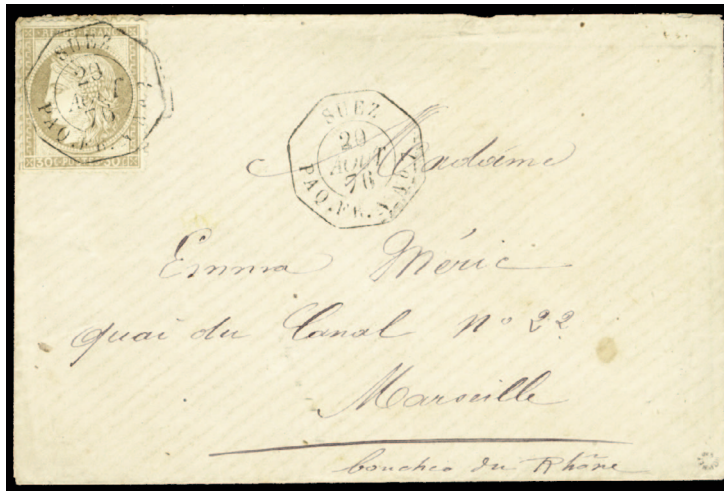 SUEZ
29
AOUT
76
PAQ. FR.
30 C POSTES 30 C
SUEZ
29
AOUT
76
PAQ. FR.
Madame
Emma Méric
quai du Canal No 22
Marseille
bouches du Rhône